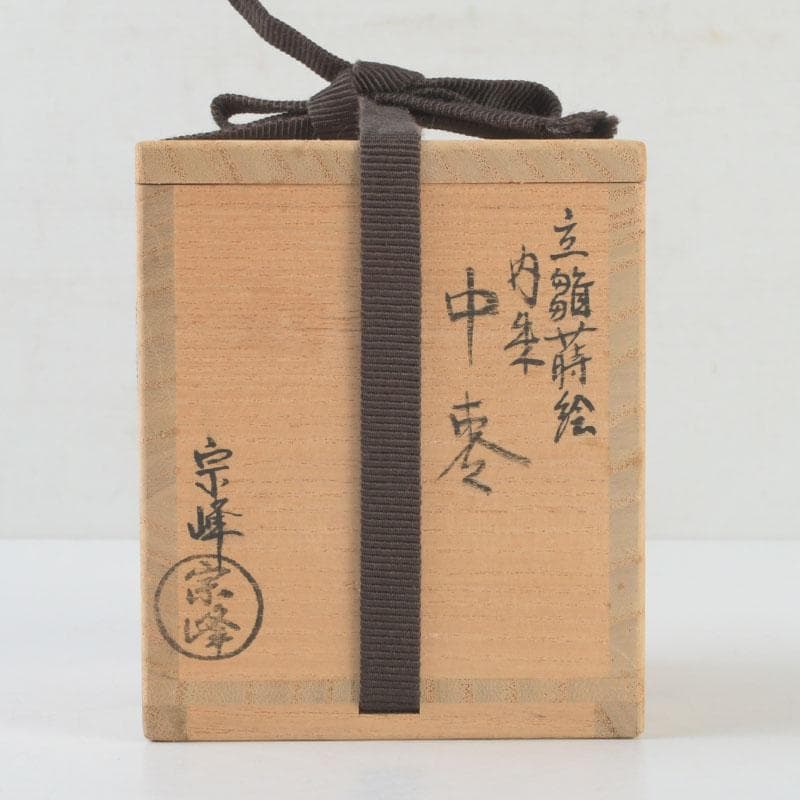 立雛蒔絵
内朱
中棗
宗峰
宗峰